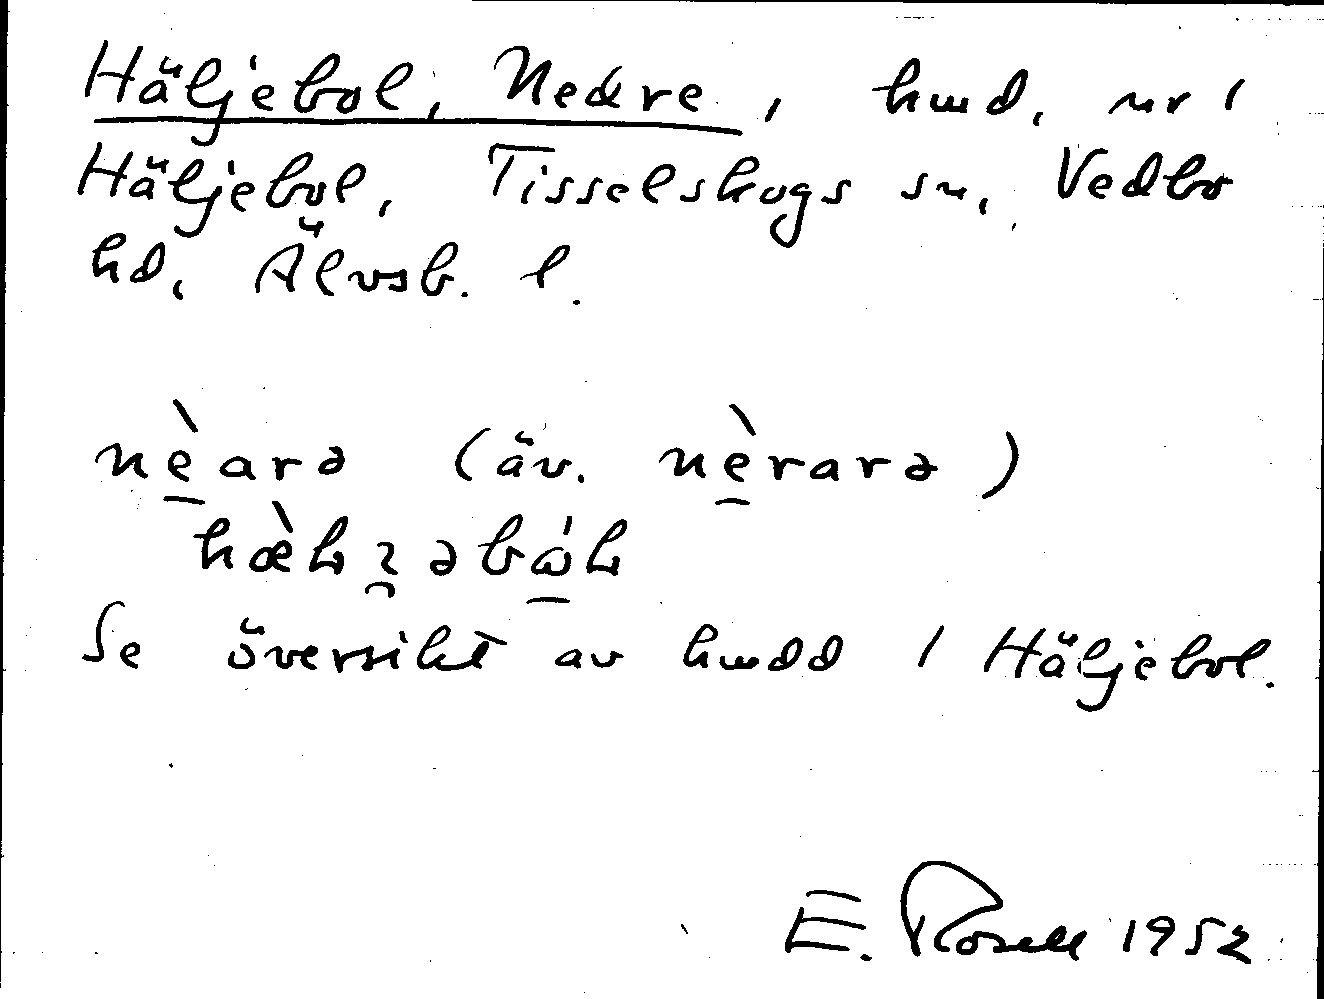 Häljebol, Nedre, hmd. nr 1
Häljebol, Tisselskogs sn, Vedbo
hd, Älvsb. l.
nè̱arə (äv. nè̱rarə)
Se översikt av hmdd / Häljebol.
E. Rosell 1952